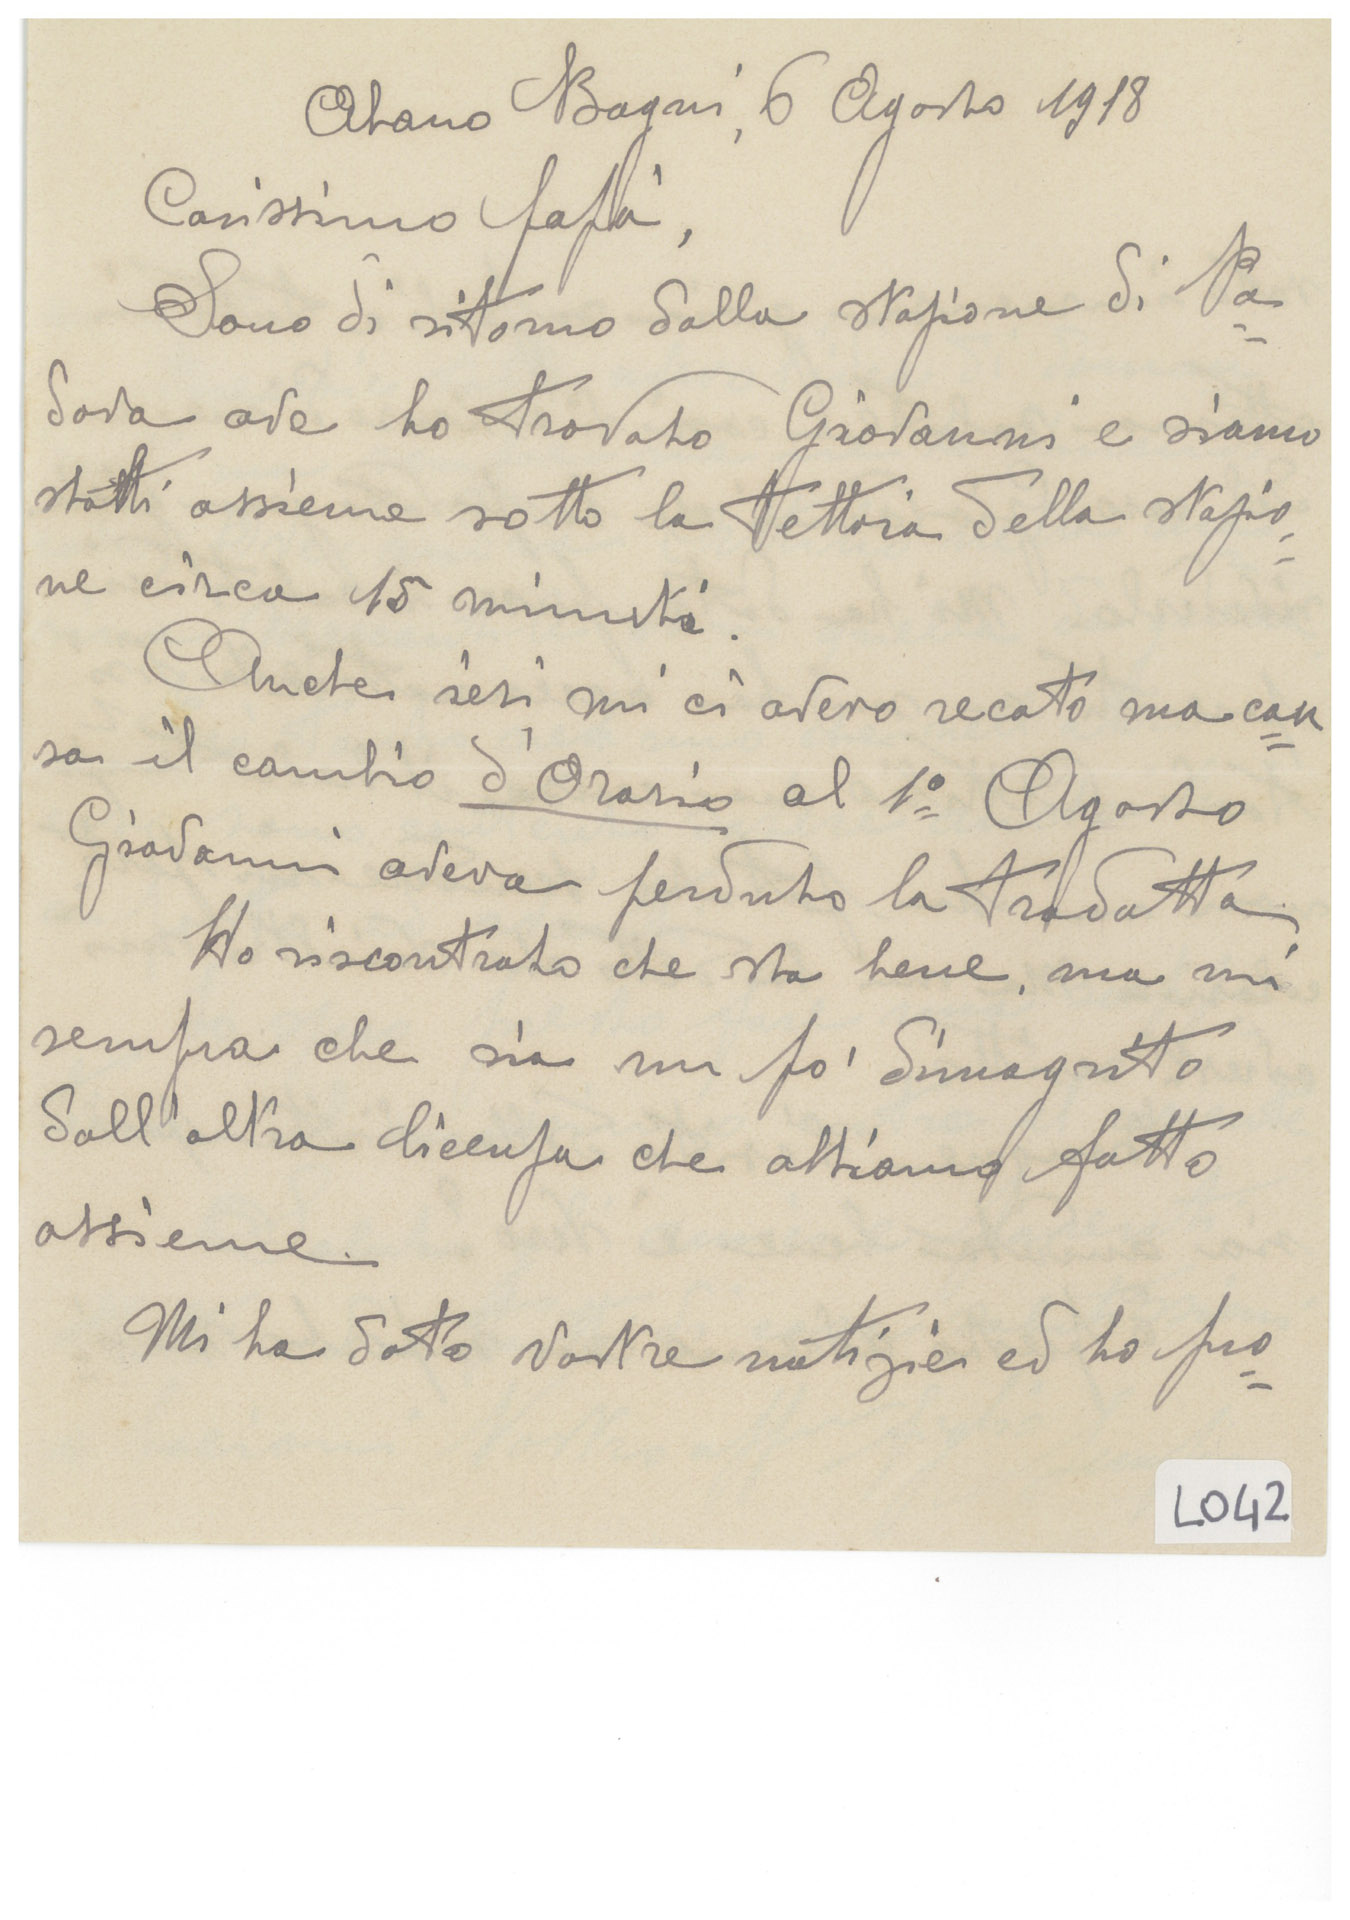 Abano Bagni, 6 Agosto 1918
Carissimo papà,
Sono di ritorno dalla stazione di Pa=
dova ove ho trovato Giovanni e siamo
statti assieme sotto la tettoia della stazio=
ne circa 15 minuti.
Anche ieri mi ci avevo recato ma cau=
sa il cambio d'Orario al 1º Agosto
Giovanni aveva perduto la tradotta.
Ho riscontrato che sta bene, ma mi
sempra che sia un po' dimagrito
dall'altra licenza che abbiamo fatto
assieme.
Mi ha dato vostre notizie ed ho pro=
L042